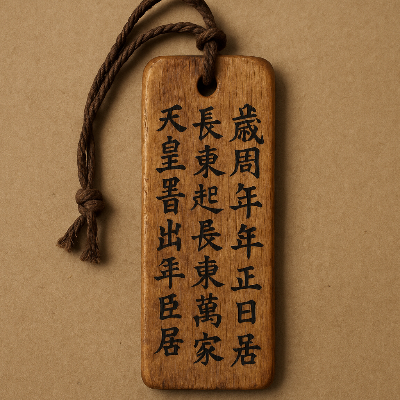 歳周年年正日居
長東起長東萬家
天皇畨出年臣居